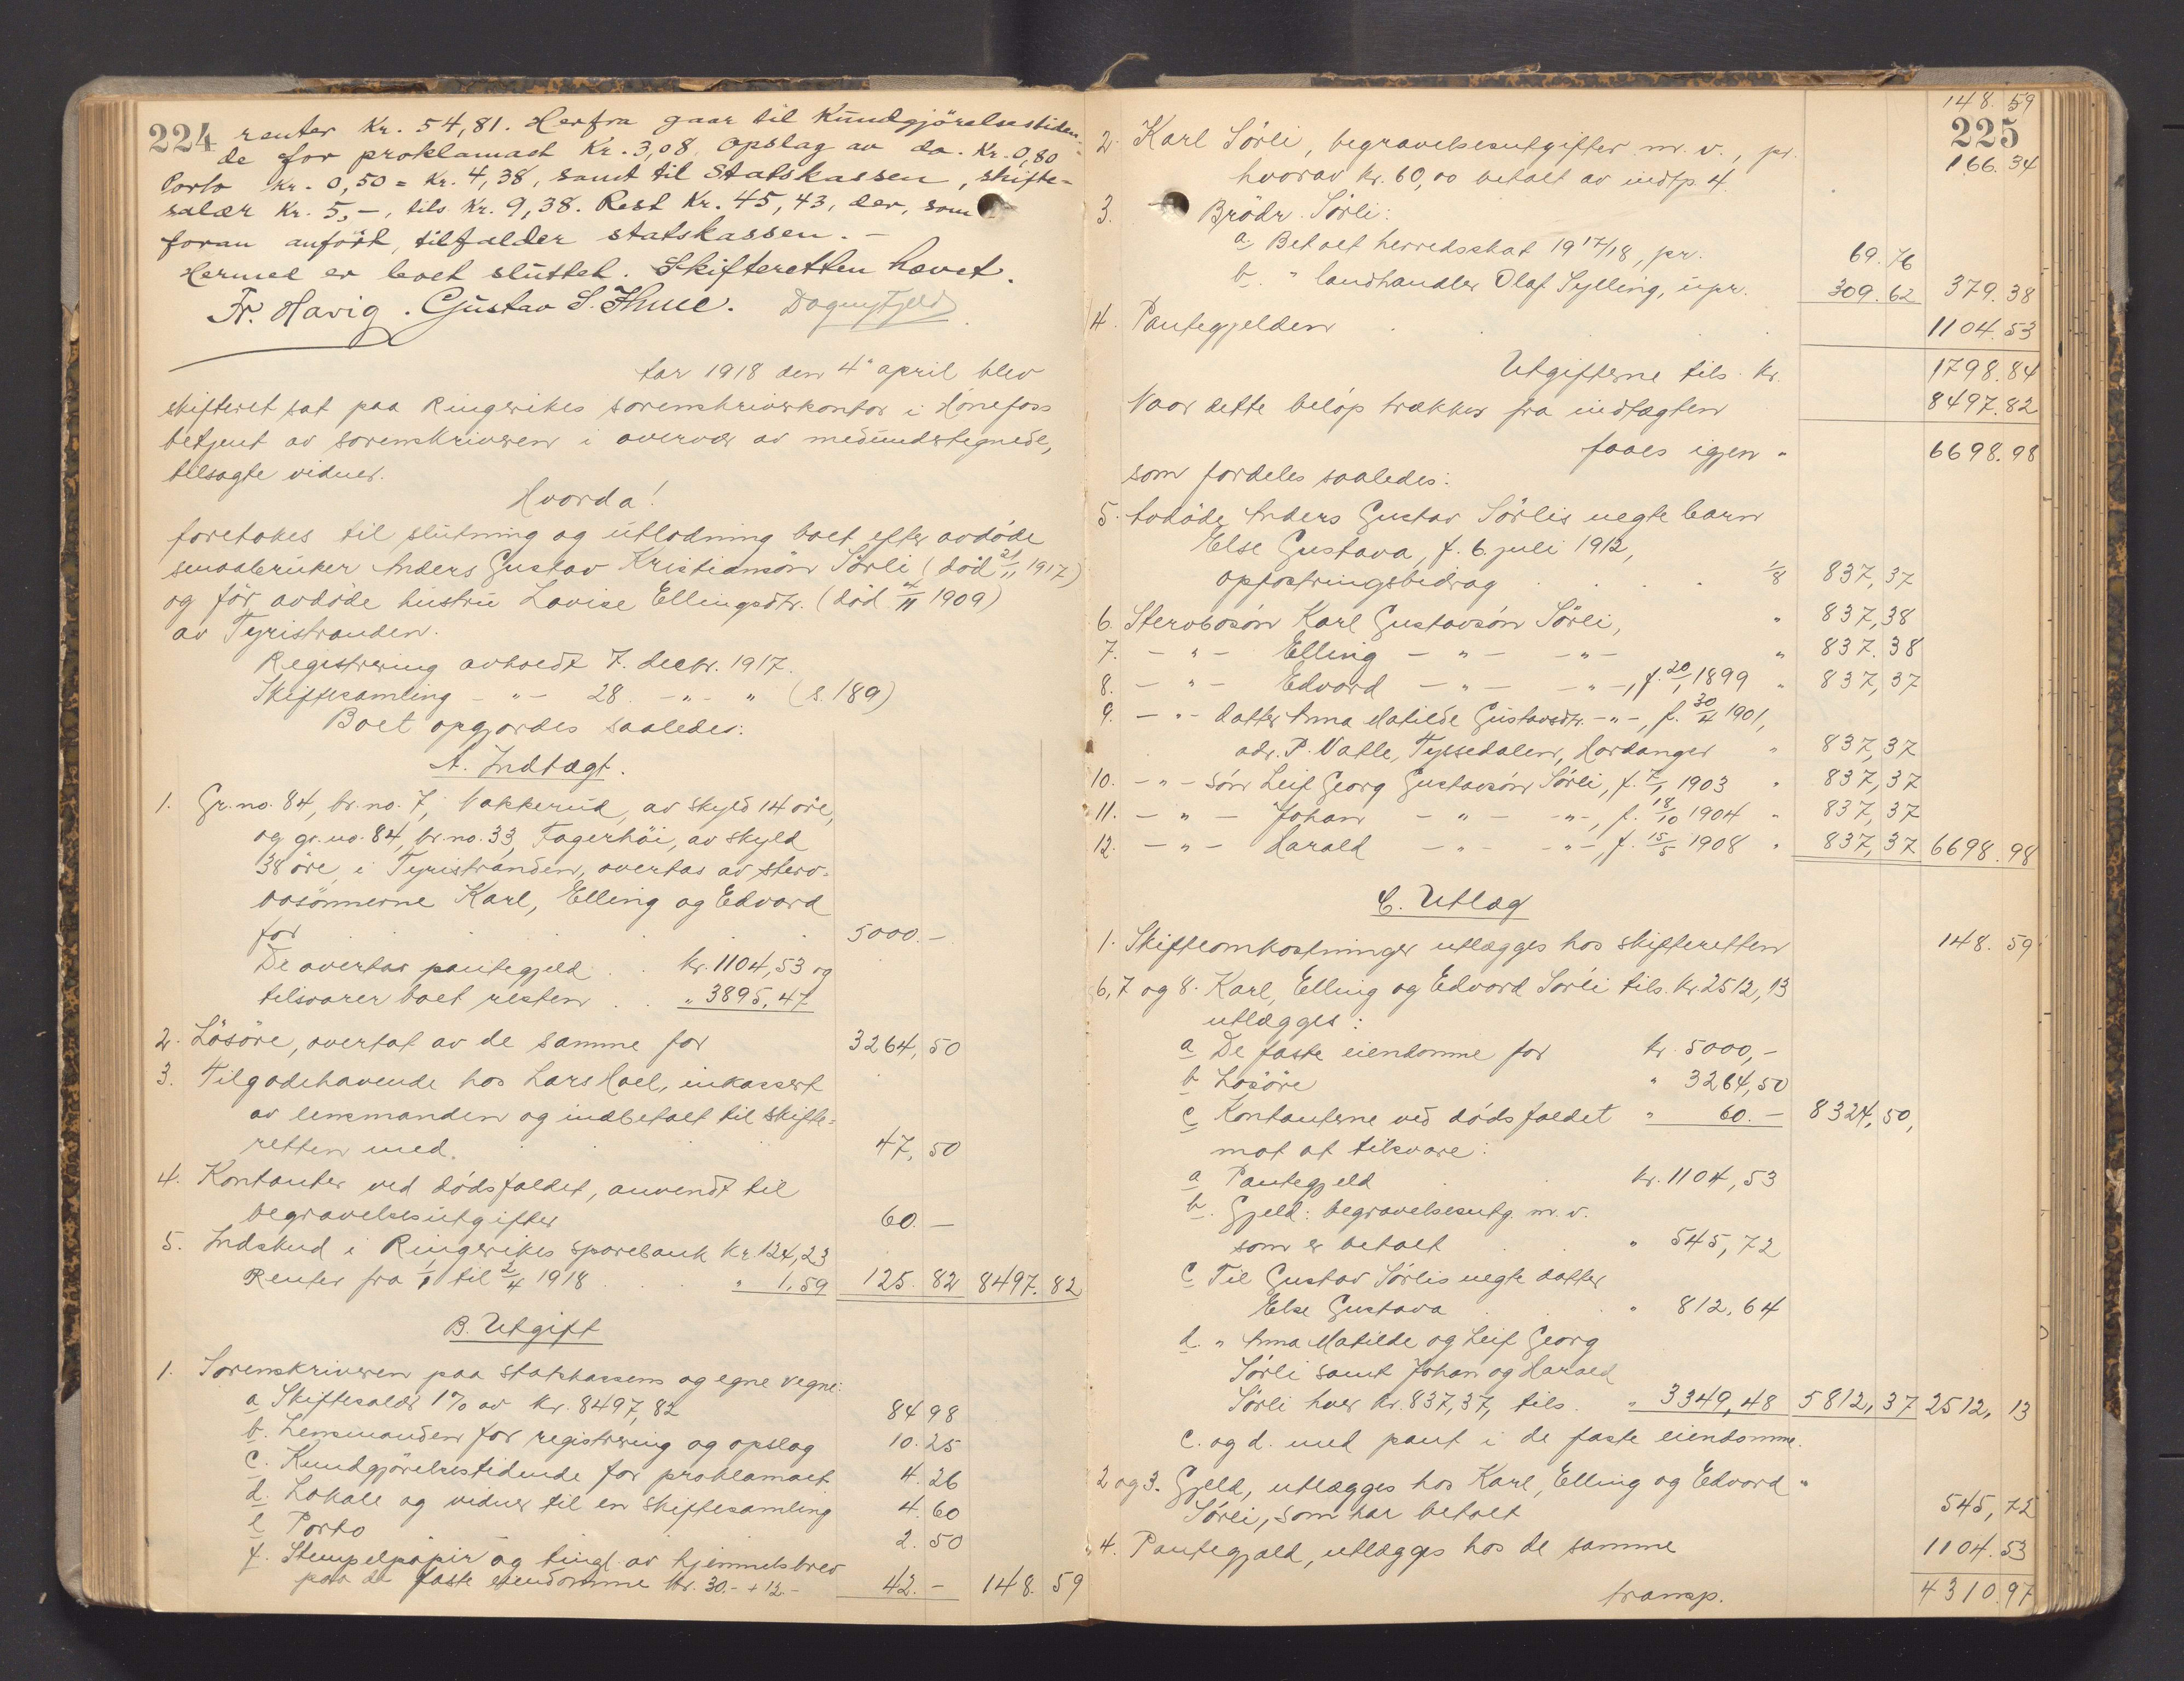 224 renter Kr. 54,81. Herfra gaar til Kundgjörelsestiden-
de for proklamast Kr. 3,08 Opslag av do. Kr. 0,80
Porto Kr. 0,50 = Kr. 4,38, samt til Statskassen, skifte-
salær Kr. 5,-, tils. Kr. 9,38. Rest Kr. 45,43, der, som
foran anfört, tilfalder statskassen. -
Hermed er boet sluttet. Skifteretten hævet.
Fr. Havig. Gustav S. Thue. Dagny Fjeld
Aar 1918 den 4' april blev
skifteret sat paa Ringerikes sorenskriverkontor i Hönefoss
betjent av sorenskriveren i overvær av medundertegnede,
tilsagte vidner.
Hvorda!
foretokes til slutning og utlodning boet efter avdöde
smaabruker Anders Gustav Kristiansön Sörli (död 21/11 1917)
og för avdöde hustru Lovise Ellingsdtr. (död 4/11 1909)
av Tyristranden.
Registrering avholdt 7. decbr. 1917.
Skiftesamling - " - 28 - " - " (s. 189)
Boet opgjordes saaledes:
A. Indtægt.
1. Gr.no. 84, br.no. 7, Nakkerud, av skyld 14 öre,
og gr.no. 84, br.no. 33, Fagerhöi, av skyld
38 öre, i Tyristranden, overtas av sterv-
bosönnerne Karl, Elling og Edvard
for . . . 5000.-
De overtar pantegjeld . . kr. 1104,53 og
tilsvarer boet resten . . " 3895,47
2. Lösöre, overtat av de samme for 3264,50
3. Tilgodehavende hos Lars Moel, inkassert
av lensmanden og indbetalt til skifte-
retten med. 47,50
4. Kontanter ved dödsfaldet, anvendt til
begravelsesutgifter 60.-
5. Indskud i Ringerikes sparebank Kr. 124,23
Renter fra 1/1 til 2/4 1918 . . " 1,59 125.82 8497.82
B. Utgift
1. Sorenskriveren paa statskassens og egne vegne:
a Skiftesalær 1% av kr. 8497,82 84 98
b. Lensmanden for registrering og opslag 10.25
c. Kundgjörelsestidende for proklamaet 4.26
d. Lokale og vidner til en skiftesamling 4.60
e Porto 2.50
f. Stempelpapir og tingl. av hjemmelsbrev
paa de faste eiendomme kr. 30.- + 12.- 42.- 148.59
148.59
225
2. Karl Sörli, begravelsesutgifter m.v., pr. 166.34
hvorav kr. 60,00 betalt av indtp. 4.
3. Brödr. Sörli:
a. Betalt herredsskat 1917/18, pr. 69.76
b. " landhandler Olaf Sylling, upr. 309.62 379.38
4. Pantegjelden . . . 1104.53
Utgifterne tils. kr. 1798.84
Naar dette belöp trækkes fra indtægten 8497.82
faaes igjen " 6698.98
som fordeles saaledes:
5. Avdöde Anders Gustav Sörlis uegte barn
Else Gustava, f. 6. juli 1912,
opfostringsbidrag . . . 1/8 837,37
6. Stervbosön Karl Gustavsön Sörli, " 837,38
7. - " - Elling - " - - " - " 837.38
8. - " - Edvard - " - - " -, f. 20/1 1899 " 837,37
9. - " - datter Anna Matilde Gustavsdtr. - " -, f. 30/4 1901,
adr. P. Valle, Tyssedalen, Hardanger " 837,37
10. - " - sön Leif Georg Gustavsön Sörli, f. 7/1 1903 " 837,37
11. - " - Johan - " - - " -, f. 18/10 1904 " 837,37
12. - " - Harald - " - - " - f. 15/5 1908 " 837,37 6698.98
C. Utlæg
1. Skifteomkostninger utlægges hos skifteretten 148.59
6, 7 og 8. Karl, Elling og Edvard Sörli tils. kr. 2512,13
utlægges:
a De faste eiendomme for kr. 5000,-
b Lösöre " 3264,50
c Kontanterne ved dödsfaldet " 60.- 8324,50,
mot at tilsvare:
a Pantegjeld . kr. 1104,53
b. Gjeld: begravelsesutg. m.v.
som er betalt . . " 545,72
c Til Gustav Sörlis uegte datter
Else Gustava . . " 812,64
d. " Anna Matilde og Leif Georg
Sörli samt Johan og Harald
Sörli hver kr. 837,37, tils. " 3349,48 5812,37 2512,13
c. og d. med pant i de faste eiendomme.
2 og 3. Gjeld, utlægges hos Karl, Elling og Edvard "
Sörli, som har betalt 545,72
4. Pantegjæld, utlægges hos de samme 1104.53
transp. 4310.97